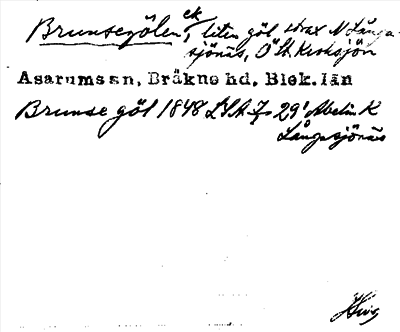 Brunsegölen ek, liten göl strax N Långa-
sjönäs, Ö St. Kroksjön
Asarums sn, Bräkne hd. Blek. län
Brunse göl 1848 LSA 7 29' Abelin K
Långasjönäs